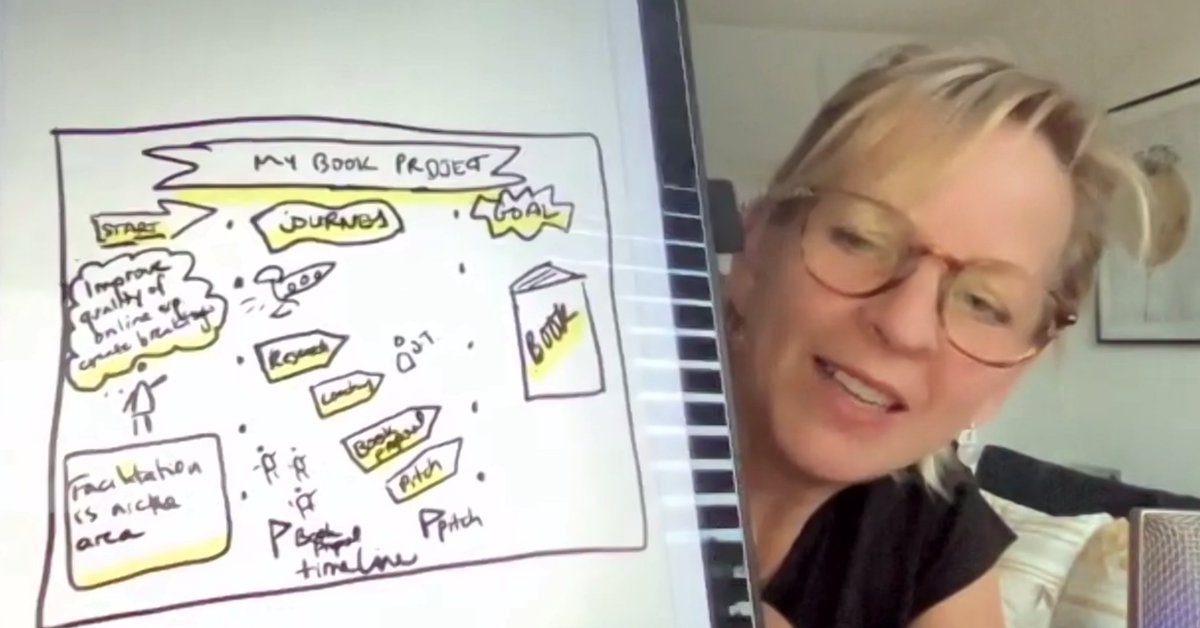 MY BOOK PROJECT
START
JOURNEY
GOAL
Improve
quality of
online
create
BOOK
Research
Book
Proposal
Pitch
Facilitation
is niche
area
Book
Proposal
Pitch
timeline